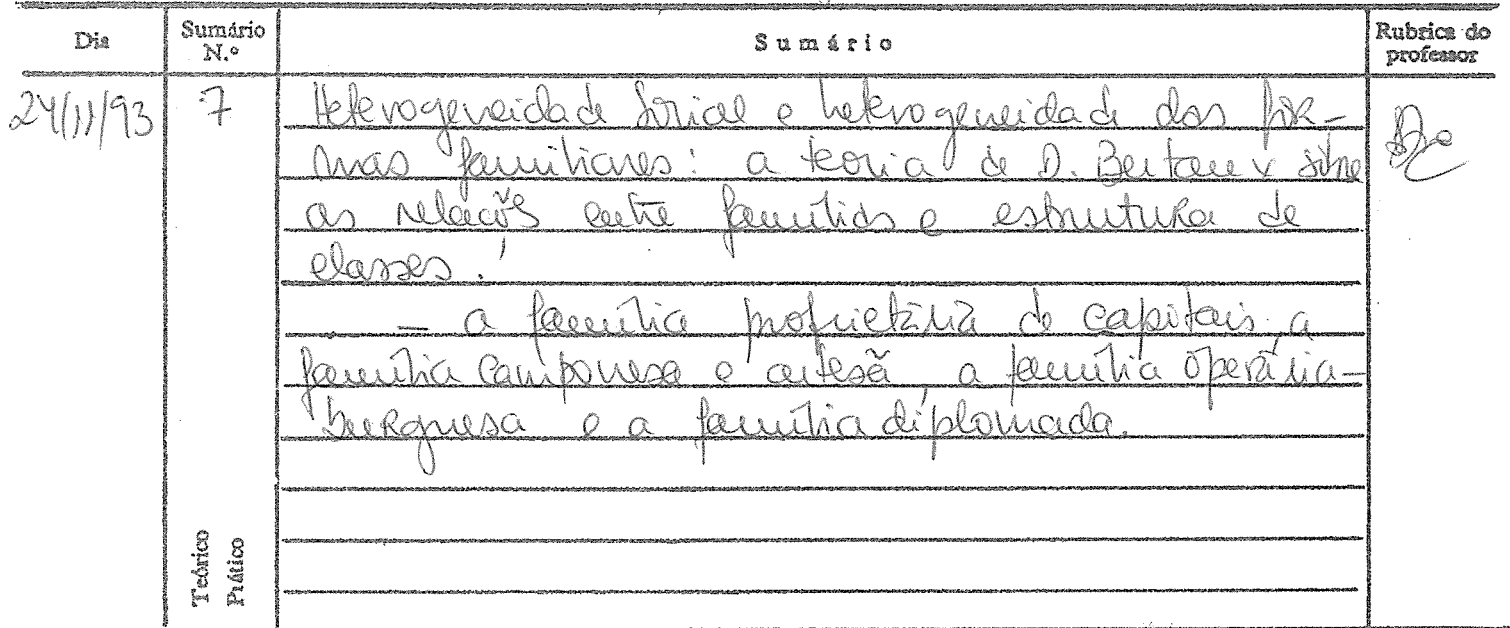 Dia
Sumário N.º
Sumário
Rubrica do professor
24/11/93
7
Heterogeneidade social e heterogeneidade das for-
mas familiares: a teoria de D. Bertaux sobre
as relações entre famílias e estrutura de
classes.
- a família proprietária de capitais, a
família camponesa e artesã, a família operária-
burguesa e a família diplomada.
Teórico
Prático